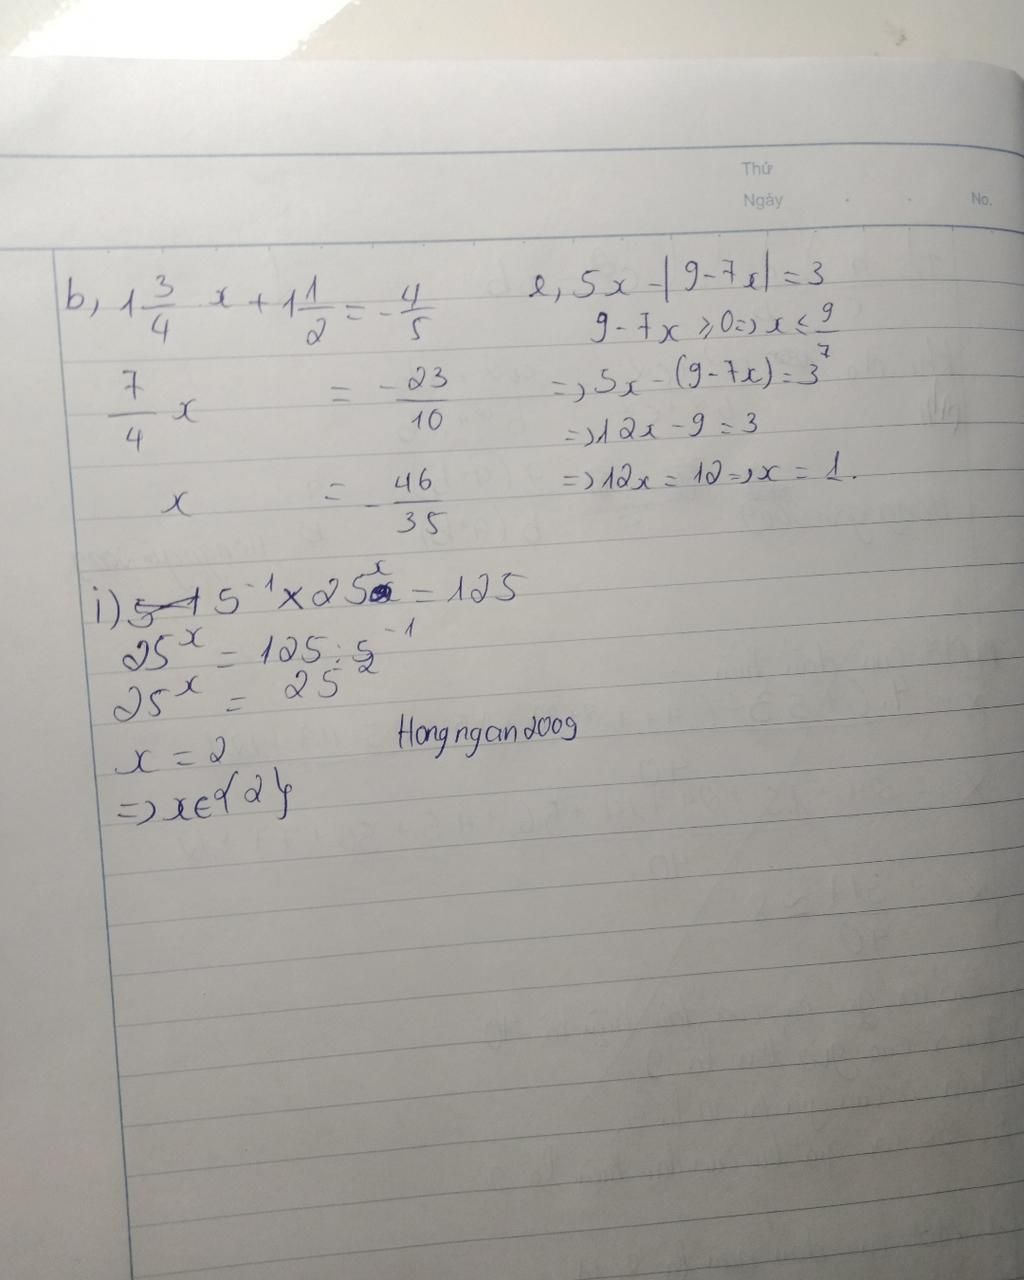 Thứ
Ngày . . No.
b, 1 3/4 x + 1 1/2 = - 4/5
7/4 x = - 23/10
x = - 46/35
e, 5x - |9-7x| = 3
9 - 7x ≥ 0 => x ≤ 9/7
=> 5x - (9-7x) = 3
=> 12x - 9 = 3
=> 12x = 12 => x = 1.
i) 5⁻¹ × 25ˣ = 125
25ˣ = 125 : 5⁻¹
25ˣ = 25²
x = 2
=> x ∈ {2}
Hongngan2009